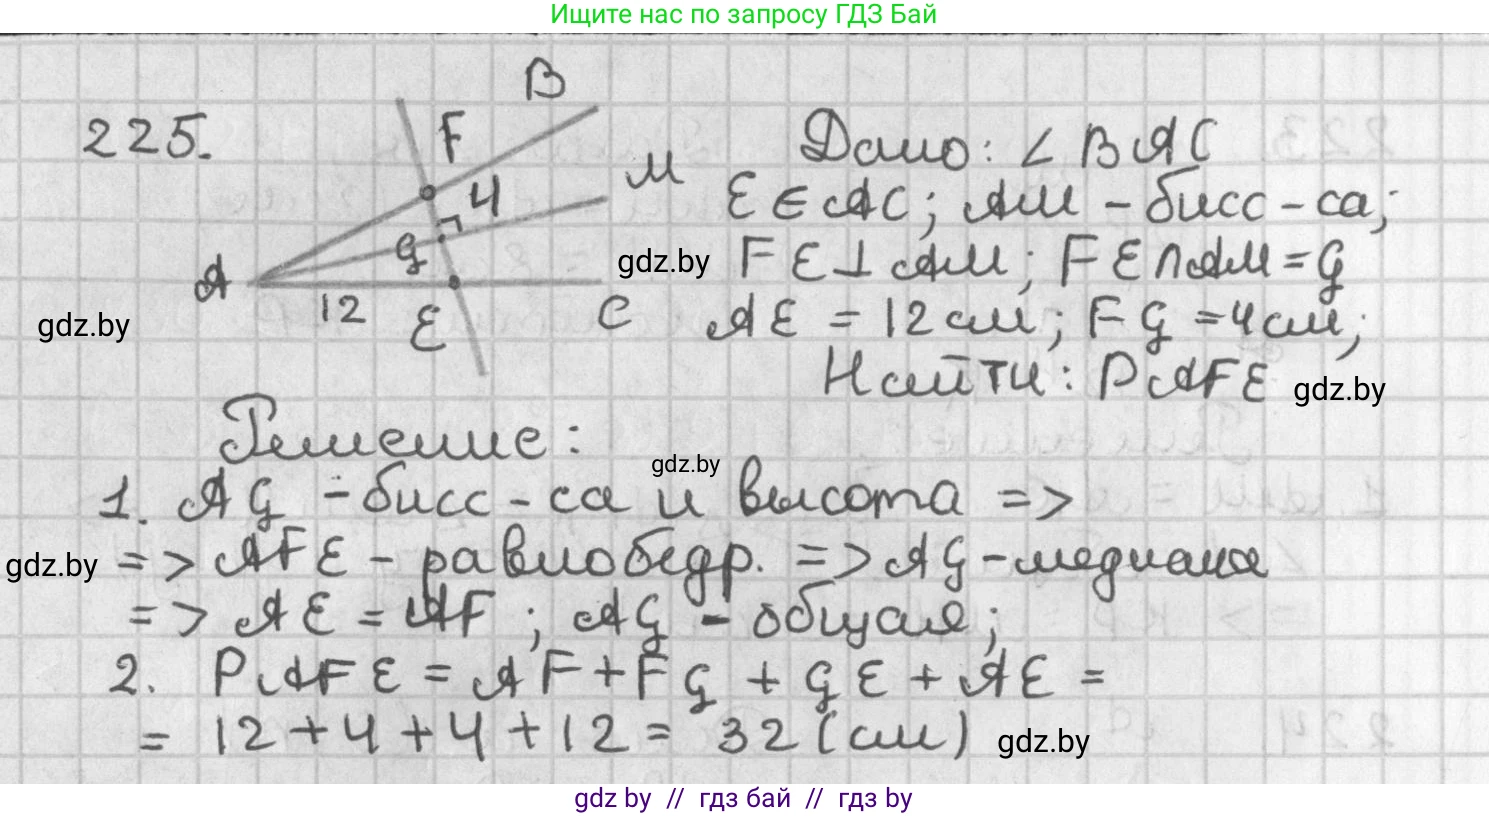 Ищите нас по запросу ГДЗ Бай
225.
B
F
M
4
G
A
12
E
C
gdz.by
Дано: ∠ BAC
E ∈ AC; AM - бисс-са;
gdz.by
FE ⊥ AM; FE ∩ AM = G
AE = 12 см; FG = 4 см;
Найти: PAFE
gdz.by
Решение:
gdz.by
1. AG - бисс-са и высота =>
gdz.by
=> AFE - равнобедр. => AG - медиана
=> AE = AF; AG - общая;
2. PAFE = AF + FG + GE + AE =
= 12 + 4 + 4 + 12 = 32 (см)
gdz.by
gdz by // гдз бай // гдз by